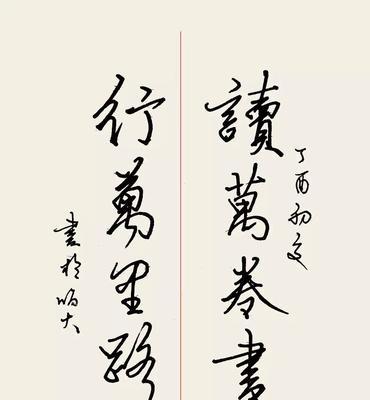 丁酉初夏
讀萬卷書
行萬里路
書於大